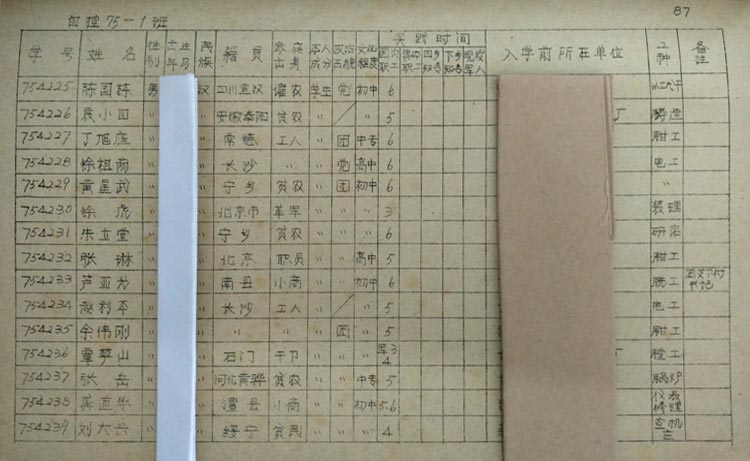 自控75-1班
87
学号 姓名 性别 出生年月 民族 籍贯 家庭出身 本人成分 政治面貌 文化程度 实践时间 入学前所在单位 工种 备注
754225 陈国栋 男 汉 四川宣汉 雇农 学生 党 初中 6
754226 袁小田 〃 〃 安徽 贫农 〃 〃 5 铸造
754227 丁旭 〃 〃 常德 工人 〃 团 中专 6 钳工
754228 徐祖荫 〃 〃 长沙 〃 〃 党 高中 6 电工
754229 黄星武 〃 〃 宁乡 贫农 〃 团 初中 6 〃
754230 徐虎 〃 〃 北京市 革军 〃 〃 〃 3
754231 朱立堂 〃 〃 宁乡 贫农 〃 〃 〃 6
754232 张琳 〃 〃 北京 职员 〃 〃 高中 5 钳工
754233 芦亚 〃 〃 南县 小商 〃 初中 6
754234 赵利平 〃 〃 长沙 工人 〃 〃 5 电工
754235 余伟刚 〃 〃 〃 〃 〃 团 5 钳工
754236 覃 山 〃 〃 石门 干卩 〃 〃 〃 军3 4
754237 张岳 〃 〃 河北黄骅 贫农 〃 〃 中专 5 锅炉
754238 〃 〃 澧县 小商 〃 〃 初中 5.6 仪表修理
754239 刘大 〃 〃 绥宁 贫民 〃 〃 〃 4